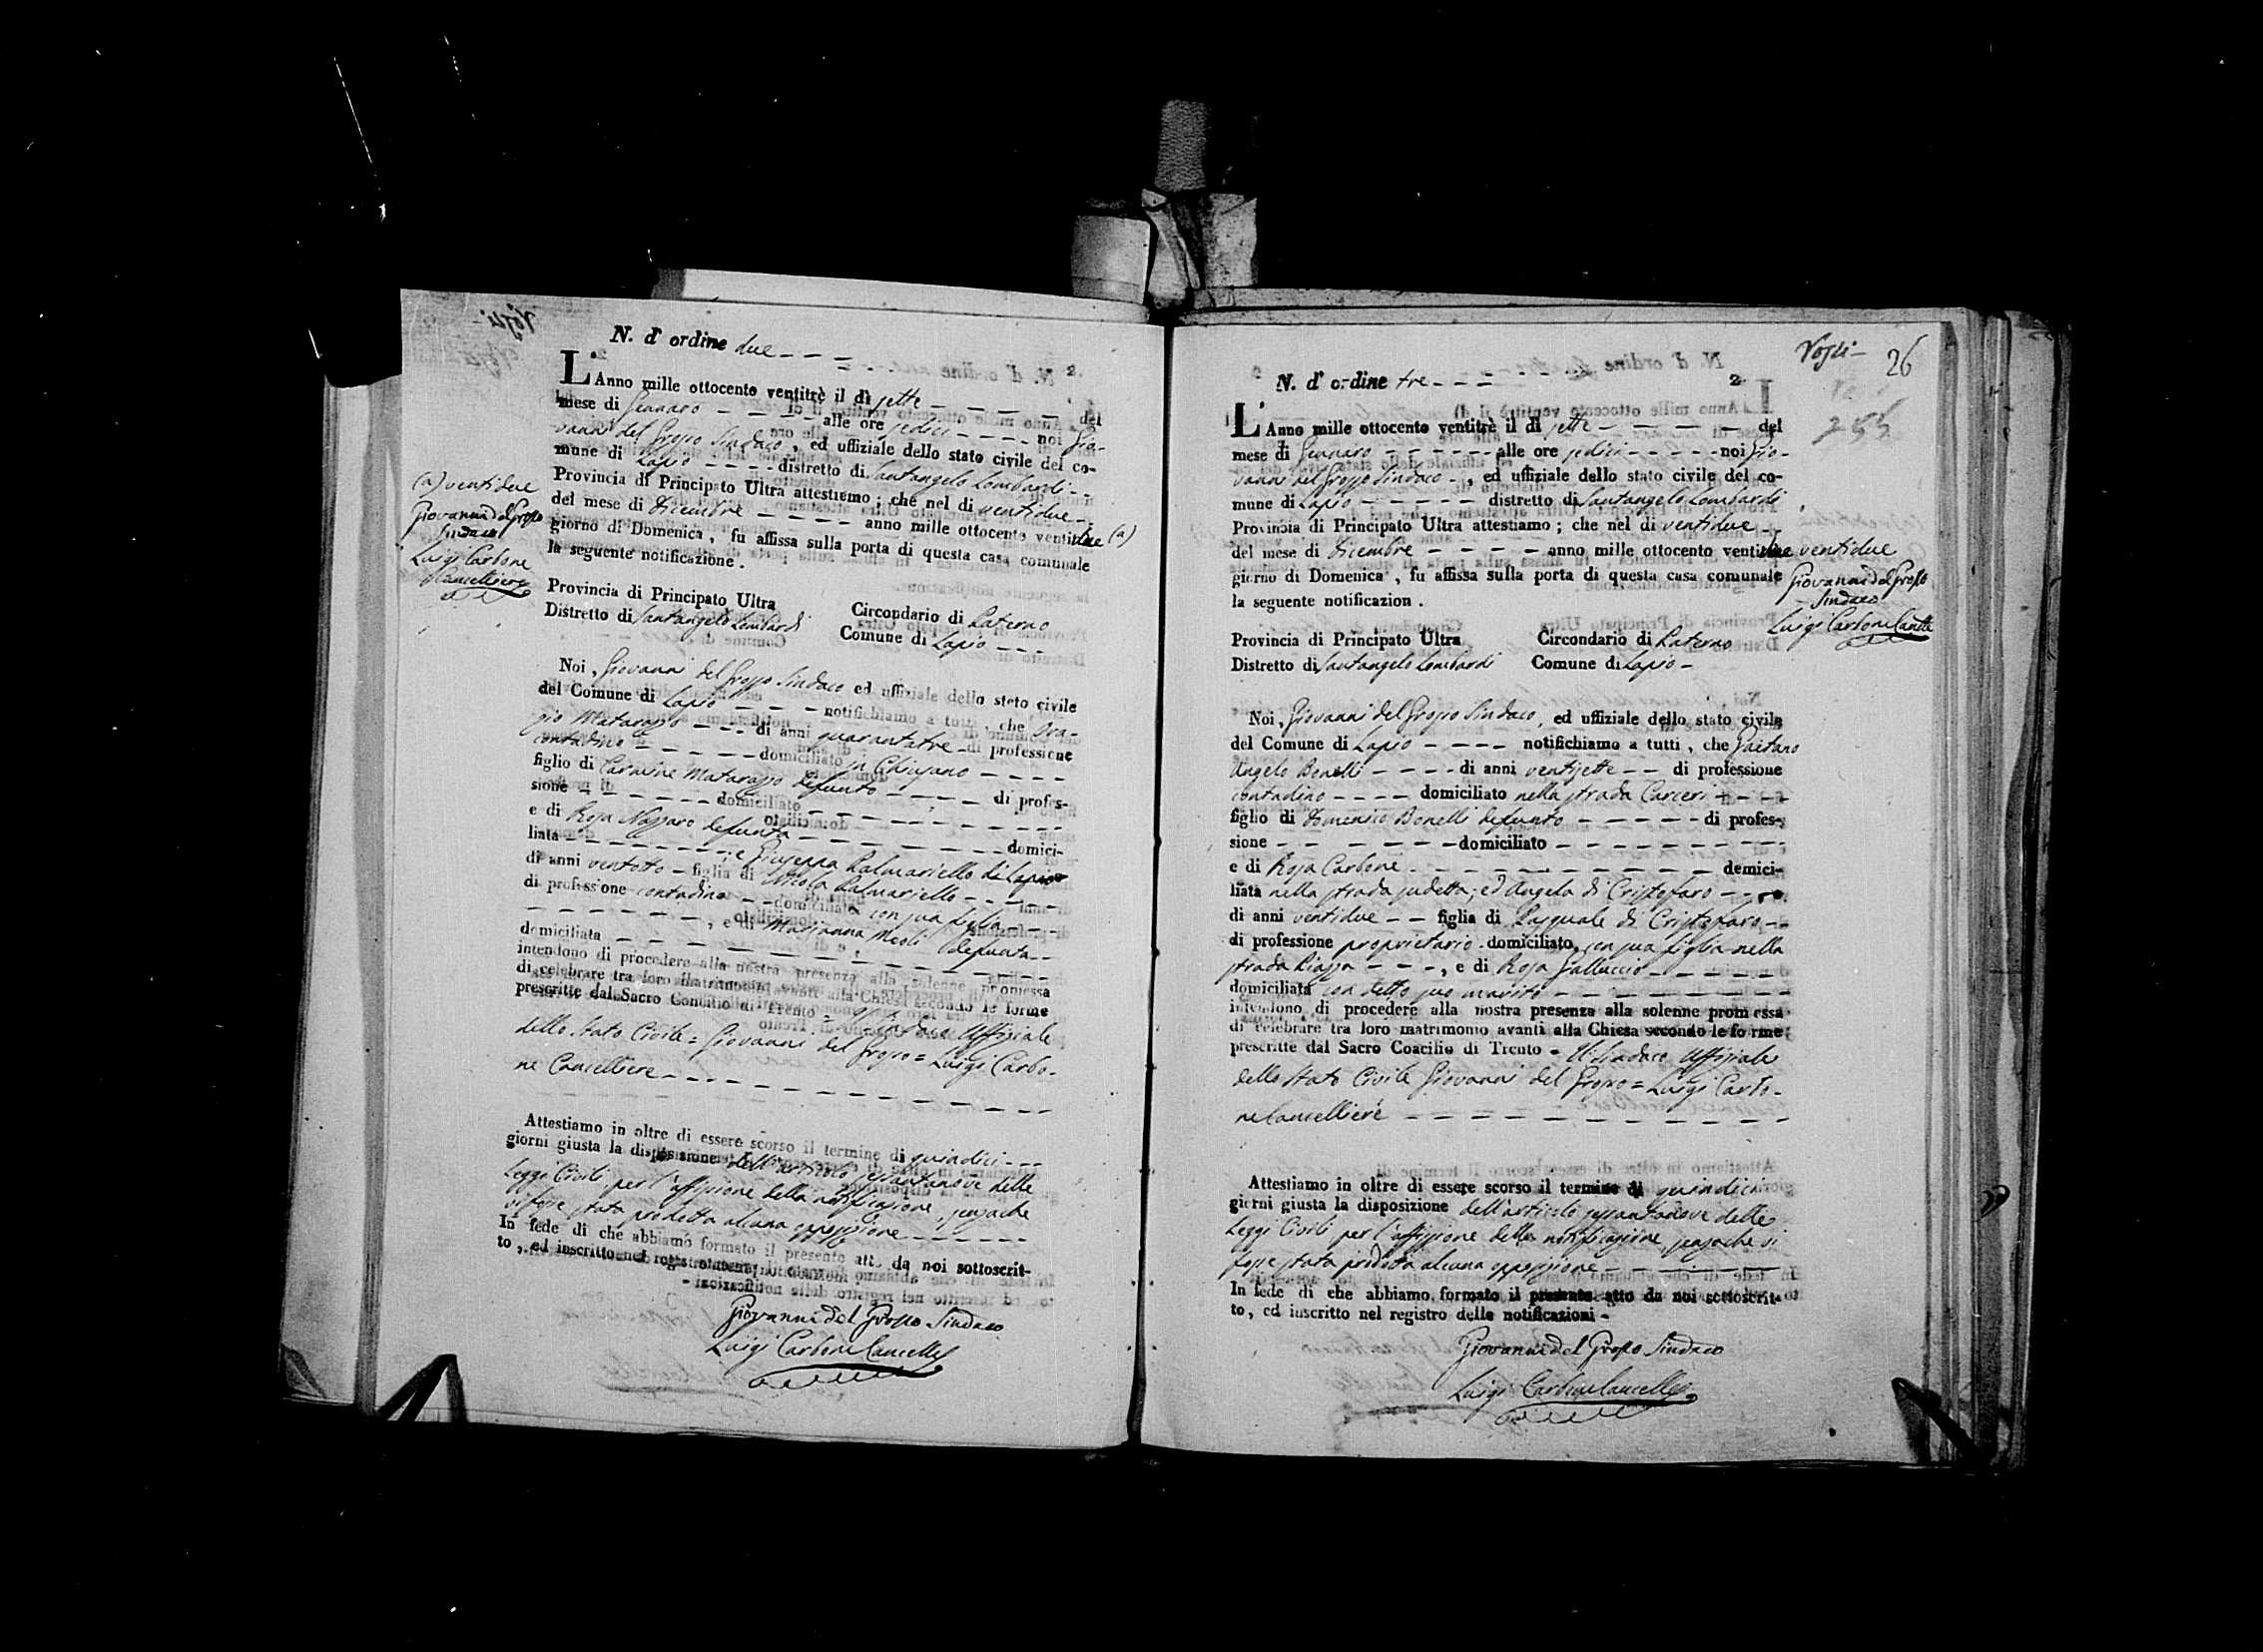 N. d' ordine due
L'Anno mille ottocento ventitrè il dì sette del
mese di Gennaro alle ore sedici noi Gio-
vanni del Grosso Sindaco, ed uffiziale dello stato civile del co-
mune di Lapio distretto di Santangelo Lombardi
Provincia di Principato Ultra attestiamo; che nel dì ventidue
del mese di Dicembre anno mille ottocento ventidue (a)
giorno di Domenica, fu affissa sulla porta di questa casa comunale
la seguente notificazione.
(a) ventidue
Giovanni del Grosso
Sindaco
Luigi Carbone
Cancelliere
Provincia di Principato Ultra
Distretto di Santangelo Lombardi
Circondario di Paterno
Comune di Lapio
Noi, Giovanni del Grosso Sindaco ed uffiziale dello stato civile
del Comune di Lapio notifichiamo a tutti, che Ora-
zio Matarazzo di anni quarantatre di professione
contadino domiciliato in Chiusano
figlio di Carmine Matarazzo defunto di profes-
sione domiciliato
e di Rosa Nazzaro defunta domici-
liata e Giuseppa Palmariello di Lapio
di anni ventotto figlia di Nicola Palmariello
di professione contadino domiciliato con sua figlia
, e di Marianna Meoli defunta
domiciliata
intendono di procedere alla nostra presenza alla solenne promessa
di celebrare tra loro matrimonio avanti alla Chiesa secondo le forme
prescritte dal Sacro Concilio di Trento = Il Sindaco Uffiziale
dello Stato Civile = Giovanni del Grosso = Luigi Carbo-
ne Cancelliere
Attestiamo in oltre di essere scorso il termine di quindici
giorni giusta la disposizione dell'articolo sessantanove delle
Leggi Civili, per l'affissione della notificazione, senzache
vi fosse stata prodotta alcuna opposizione
In fede di che abbiamo formato il presente atto da noi sottoscrit-
to, ed inscritto nel registro delle notificazioni -
Giovanni del Grosso Sindaco
Luigi Carbone Cancelle
26
N. d' ordine tre
2
L'Anno mille ottocento ventitrè il dì sette del
mese di Gennaro alle ore sedici noi Gio-
vanni del Grosso Sindaco, ed uffiziale dello stato civile del co-
mune di Lapio distretto di Santangelo Lombardi
Provincia di Principato Ultra attestiamo; che nel dì ventidue
del mese di Dicembre anno mille ottocento ventidue ventidue
giorno di Domenica, fu affissa sulla porta di questa casa comunale
la seguente notificazion.
Giovanni del Grosso
Sindaco
Luigi Carbone Canc
Provincia di Principato Ultra
Distretto di Santangelo Lombardi
Circondario di Paterno
Comune di Lapio
Noi, Giovanni del Grosso Sindaco, ed uffiziale dello stato civile
del Comune di Lapio notifichiamo a tutti, che Gaetano
Angelo Bonelli di anni ventisette di professione
contadino domiciliato nella strada Carceri
figlio di Domenico Bonelli defunto di profes-
sione domiciliato
e di Rosa Carbone domici-
liata nella strada sudetta; ed Angela di Cristofaro
di anni ventidue figlia di Pasquale di Cristofaro
di professione proprietario domiciliato, con sua figlia nella
strada Piazza, e di Rosa Galluccio
domiciliata con detto suo marito
intendono di procedere alla nostra presenza alla solenne promessa
di celebrare tra loro matrimonio avanti alla Chiesa secondo le forme
prescritte dal Sacro Coacilio di Trento = Il Sindaco Uffiziale
dello Stato Civile Giovanni del Grosso = Luigi Carbo-
ne Cancelliere
Attestiamo in oltre di essere scorso il termine di quindici
giorni giusta la disposizione dell'articolo sessantanove delle
Leggi Civili per l'affissione della notificazione, senzache vi
fosse stata prodotta alcuna opposizione
In fede di che abbiamo formato il presente atto da noi sottoscrit-
to, ed inscritto nel registro delle notificazioni -
Giovanni del Grosso Sindaco
Luigi Carbone Cancelle